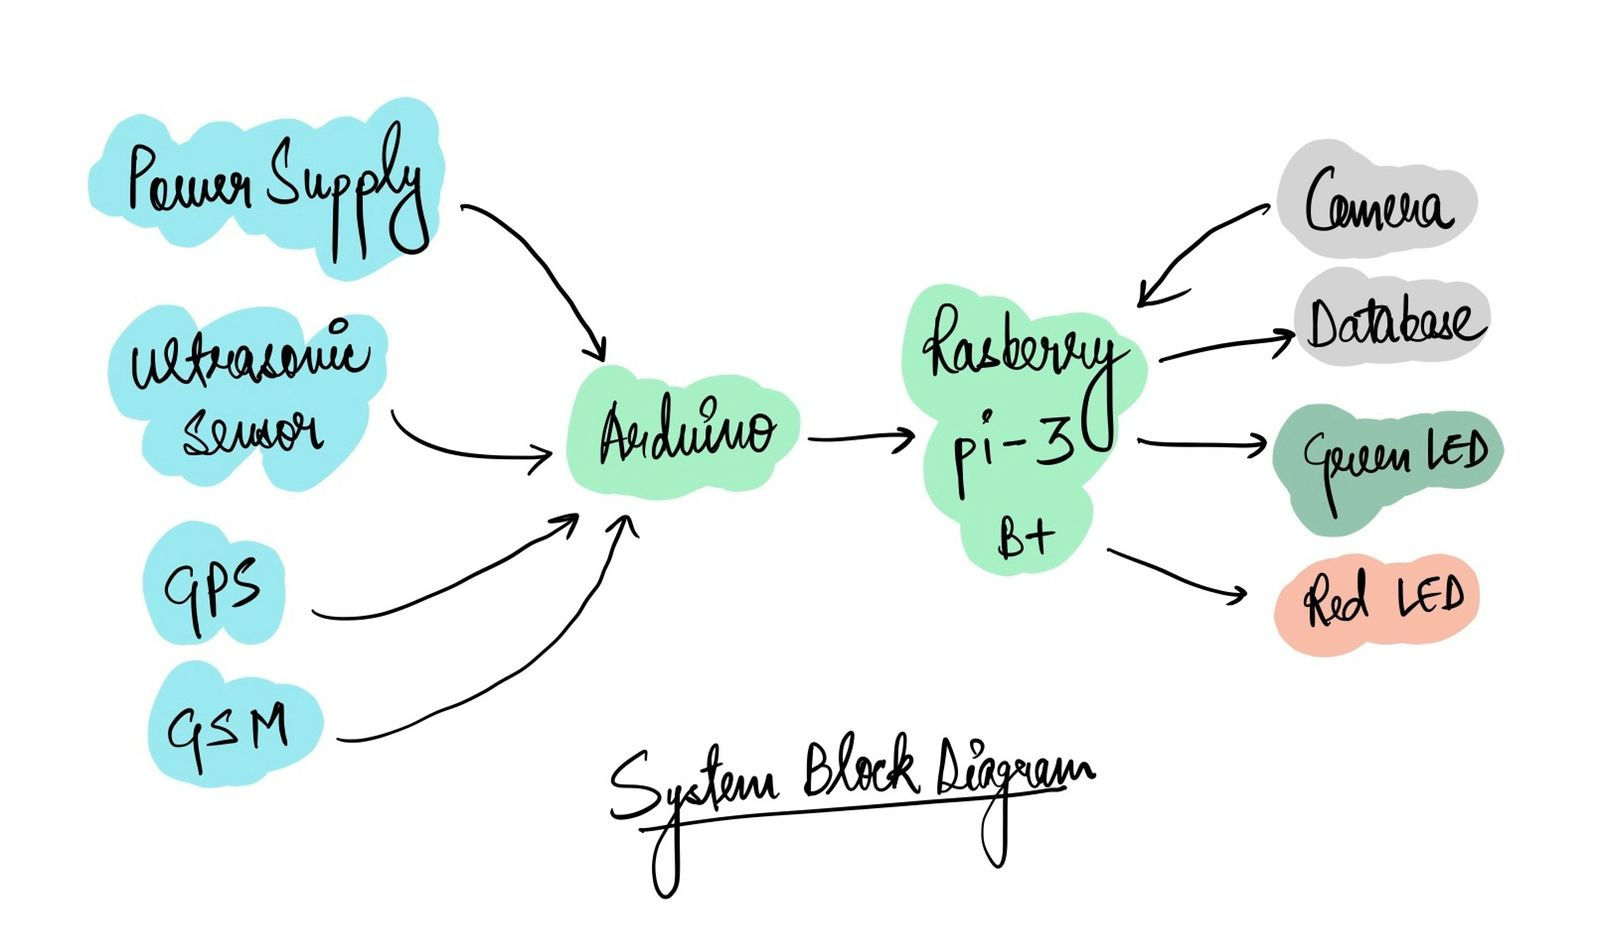 Power Supply
Ultrasonic
Sensor
GPS
GSM
Arduino
Rasberry
pi-3
B+
Camera
Database
Green LED
Red LED
System Block Diagram